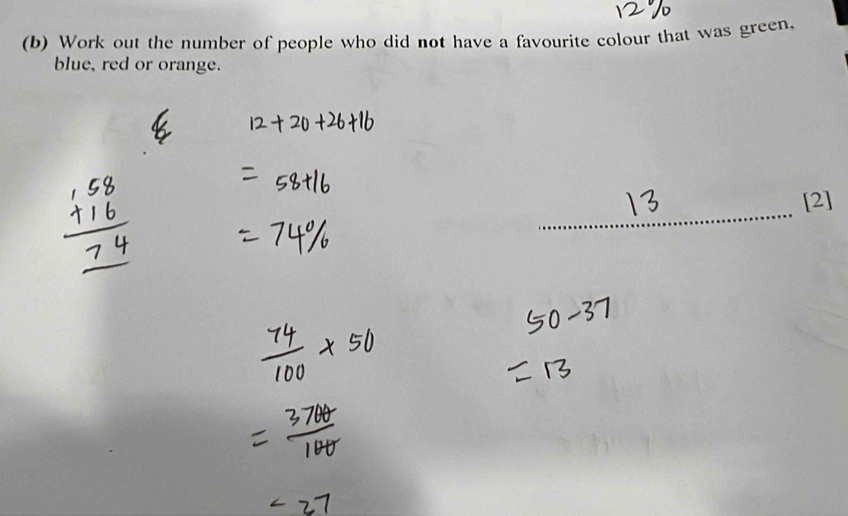 12%
(b) Work out the number of people who did not have a favourite colour that was green,
blue, red or orange.
12 + 20 + 26 + 16
= 58 + 16
= 74%
1 58
+ 16
74
13 [2]
74/100 × 50
= 3700/100
= 37
50 - 37
= 13